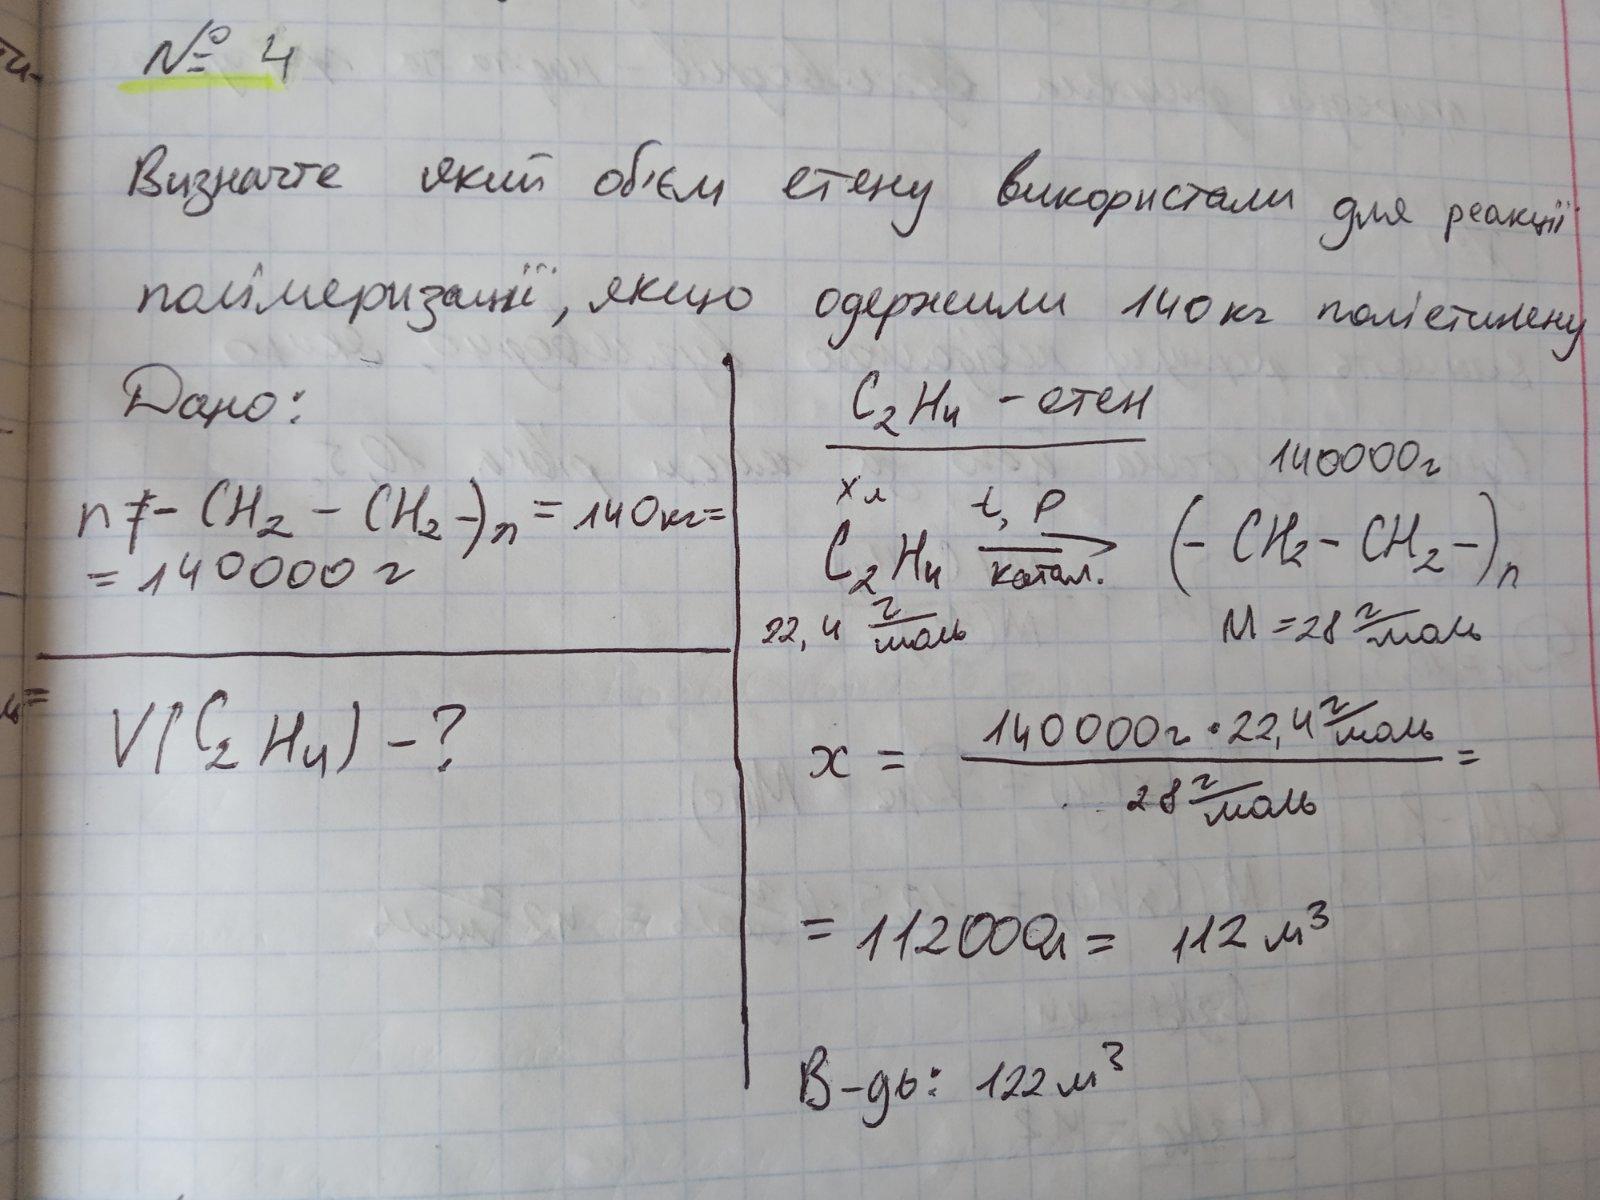 № 4
Визначте який об'єм етену використали для реакції
полімеризації, якщо одержили 140 кг поліетилену
Дано:
n (- CH2 - CH2 -)n = 140 кг =
= 140000 г
V(C2H4) - ?
C2H4 - етен
x л t, P 140000 г
C2H4 → (- CH2 - CH2 -)n
катал.
22,4 г/моль M = 28 г/моль
x = 140000 г · 22,4 г/моль / 28 г/моль =
= 112000 л = 112 м³
В-дь: 122 м³